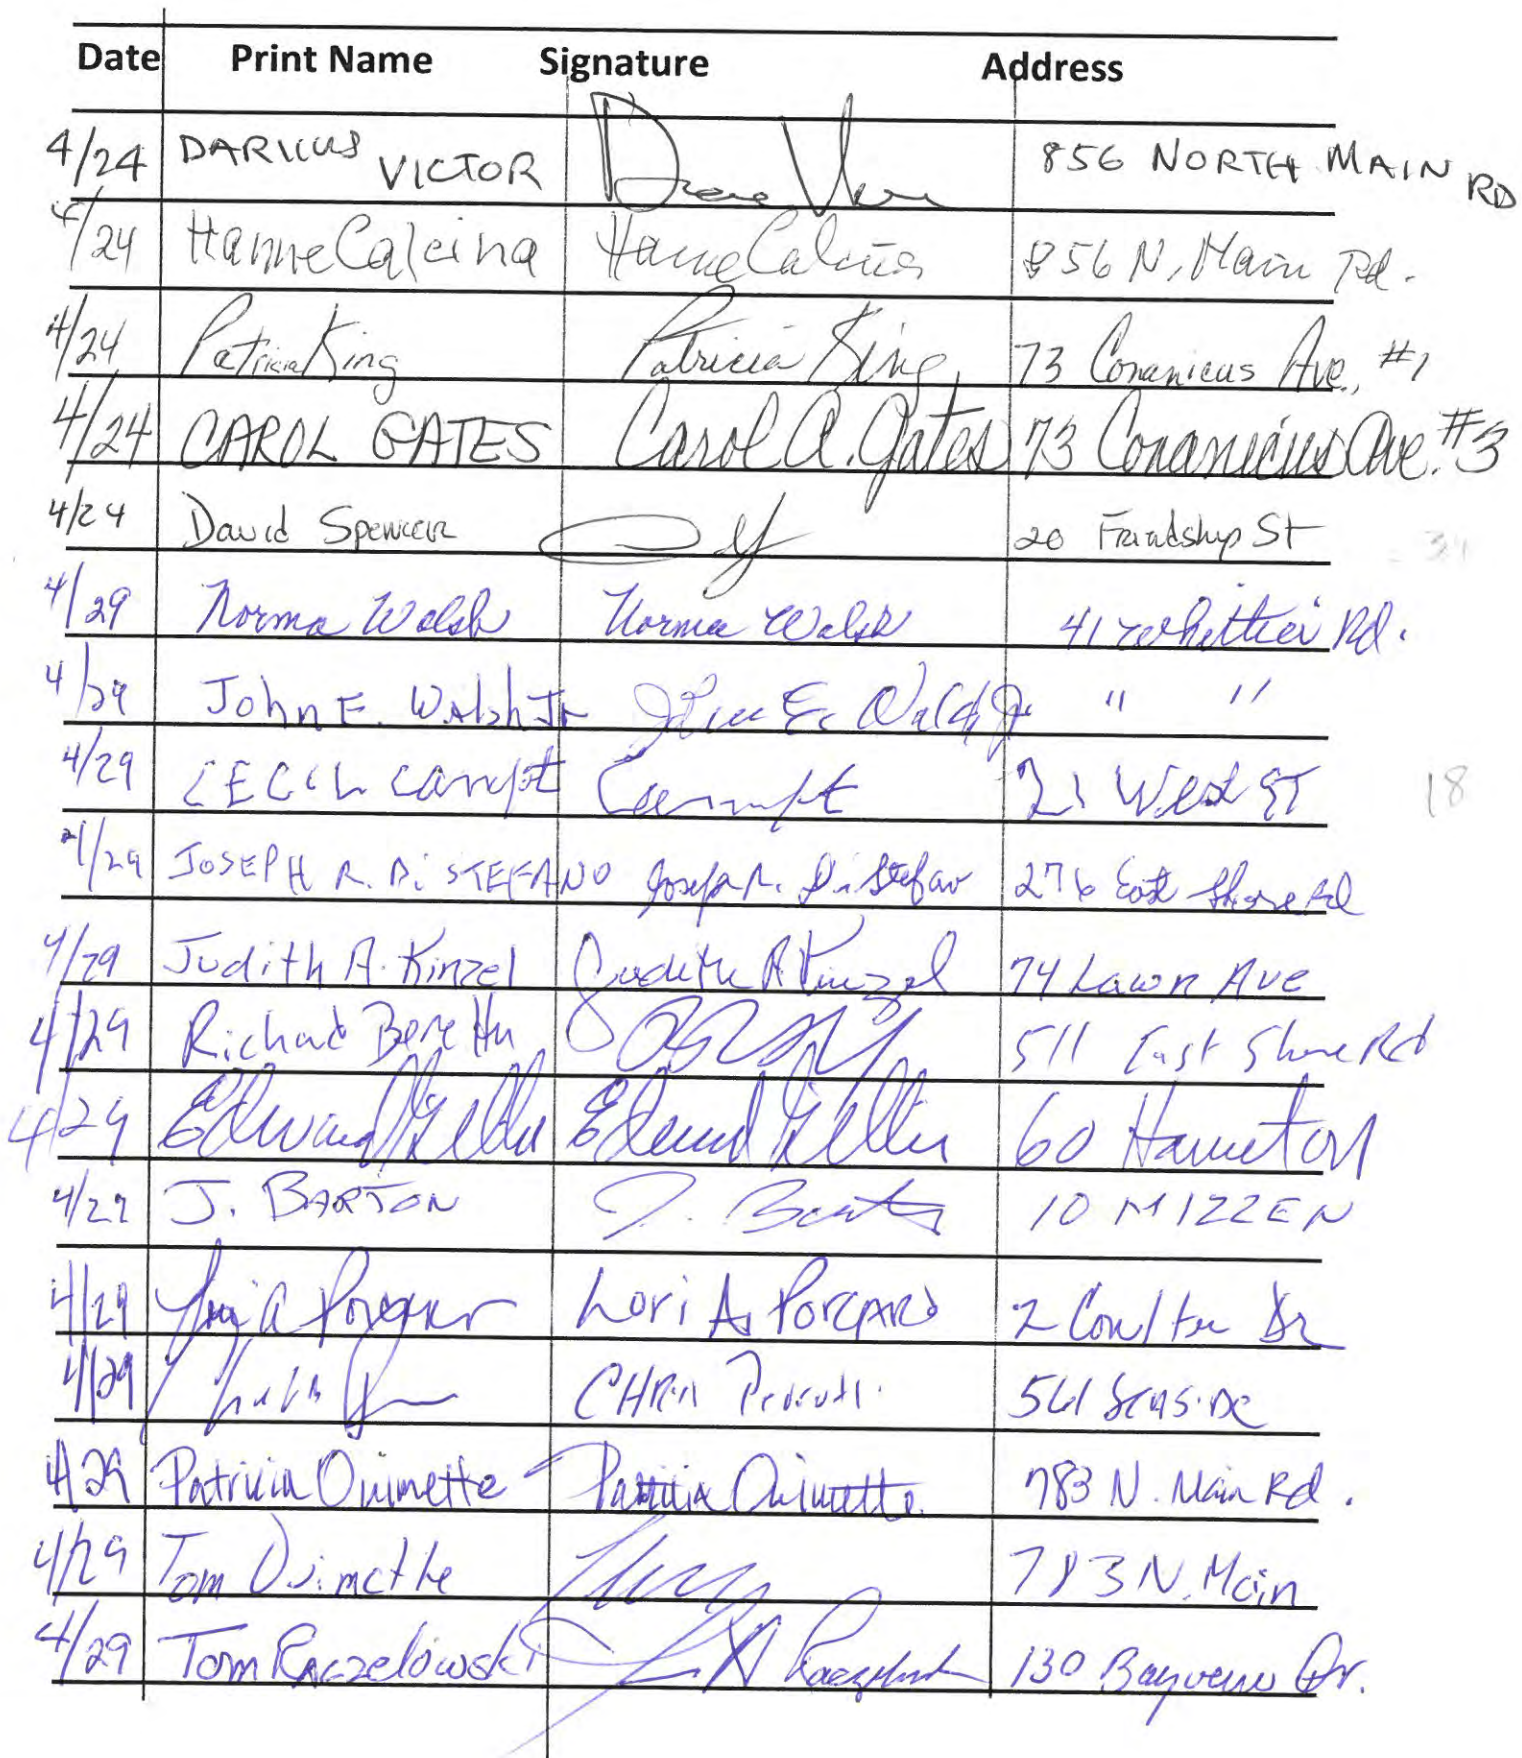 Date Print Name Signature Address
4/24 DARICUS VICTOR 856 NORTH MAIN RD
4/24 Hanne Calcina Hanne Calcina 856 N. Main Rd.
4/24 Patricia King Patricia King 73 Conanicus Ave, #1
4/24 CAROL GATES Carol A. Gates 73 Conanicus Ave. #3
4/24 David Spencer 20 Friendship St
4/29 Norma Walsh Norma Walsh 41 Whittier Rd.
4/29 John E. Walsh Jr John E. Walsh Jr " "
4/29 CECIL 21 West ST 18
4/29 JOSEPH R. DiSTEFANO Joseph R. DiStefano 276 East Shore Rd
4/29 Judith A. Kinzel Judith A Kinzel 74 Lawn Ave
4/29 Richard Beretta 511 East Shore Rd
4/29 Edward Edward 60
4/29 J. BARTON J. Barton 10 MIZZEN
4/29 Lori A. 2 Coulter Dr
4/29 561 Seaside
4/29 Patricia Ouimette Patricia Ouimette 783 N. Main Rd.
4/29 Tom Ouimette 783 N. Main
4/29 Tom Raczelowski 130 Bayview Dr.